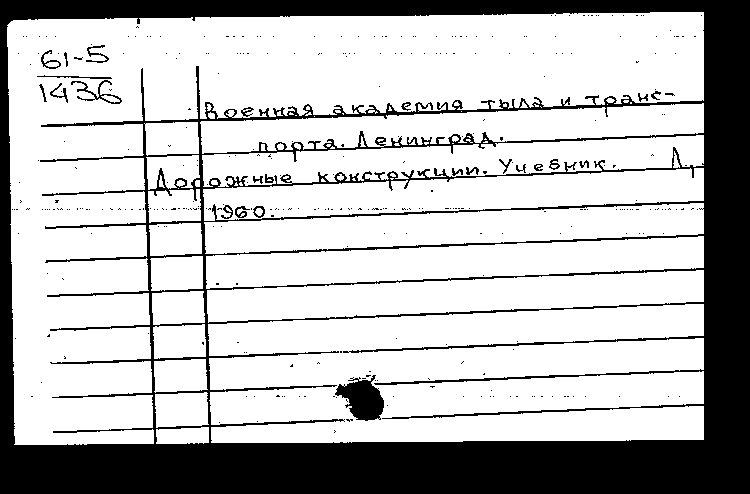 61-5
1436
Военная академия тыла и транс-
порта. Ленинград.
Дорожные конструкции. Учебник. Л.,
1960.